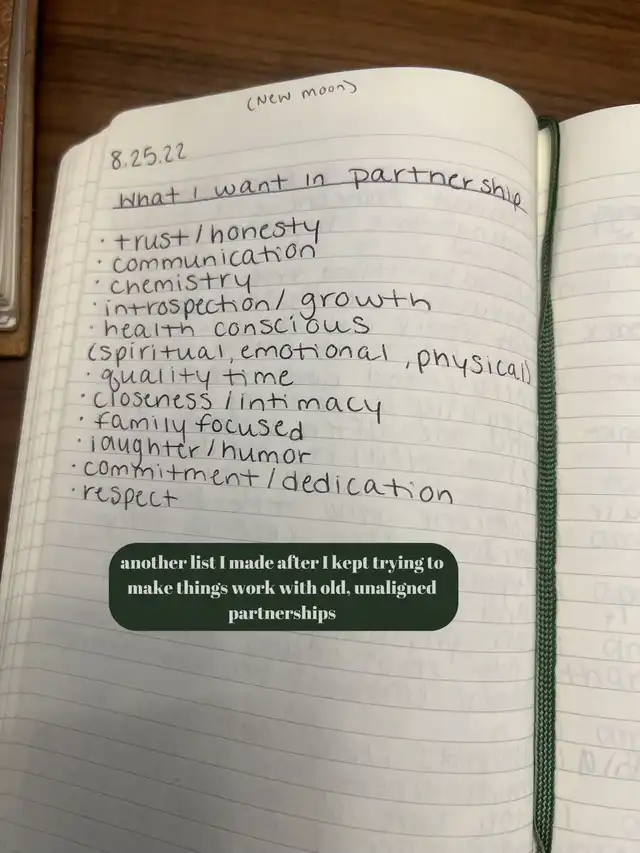 (New moon)
8.25.22
What I want in partnership
· trust/honesty
· communication
· chemistry
· introspection/growth
· health conscious
(spiritual, emotional, physical)
· quality time
· closeness/intimacy
· family focused
· laughter/humor
· commitment/dedication
· respect
another list I made after I kept trying to
make things work with old, unaligned
partnerships